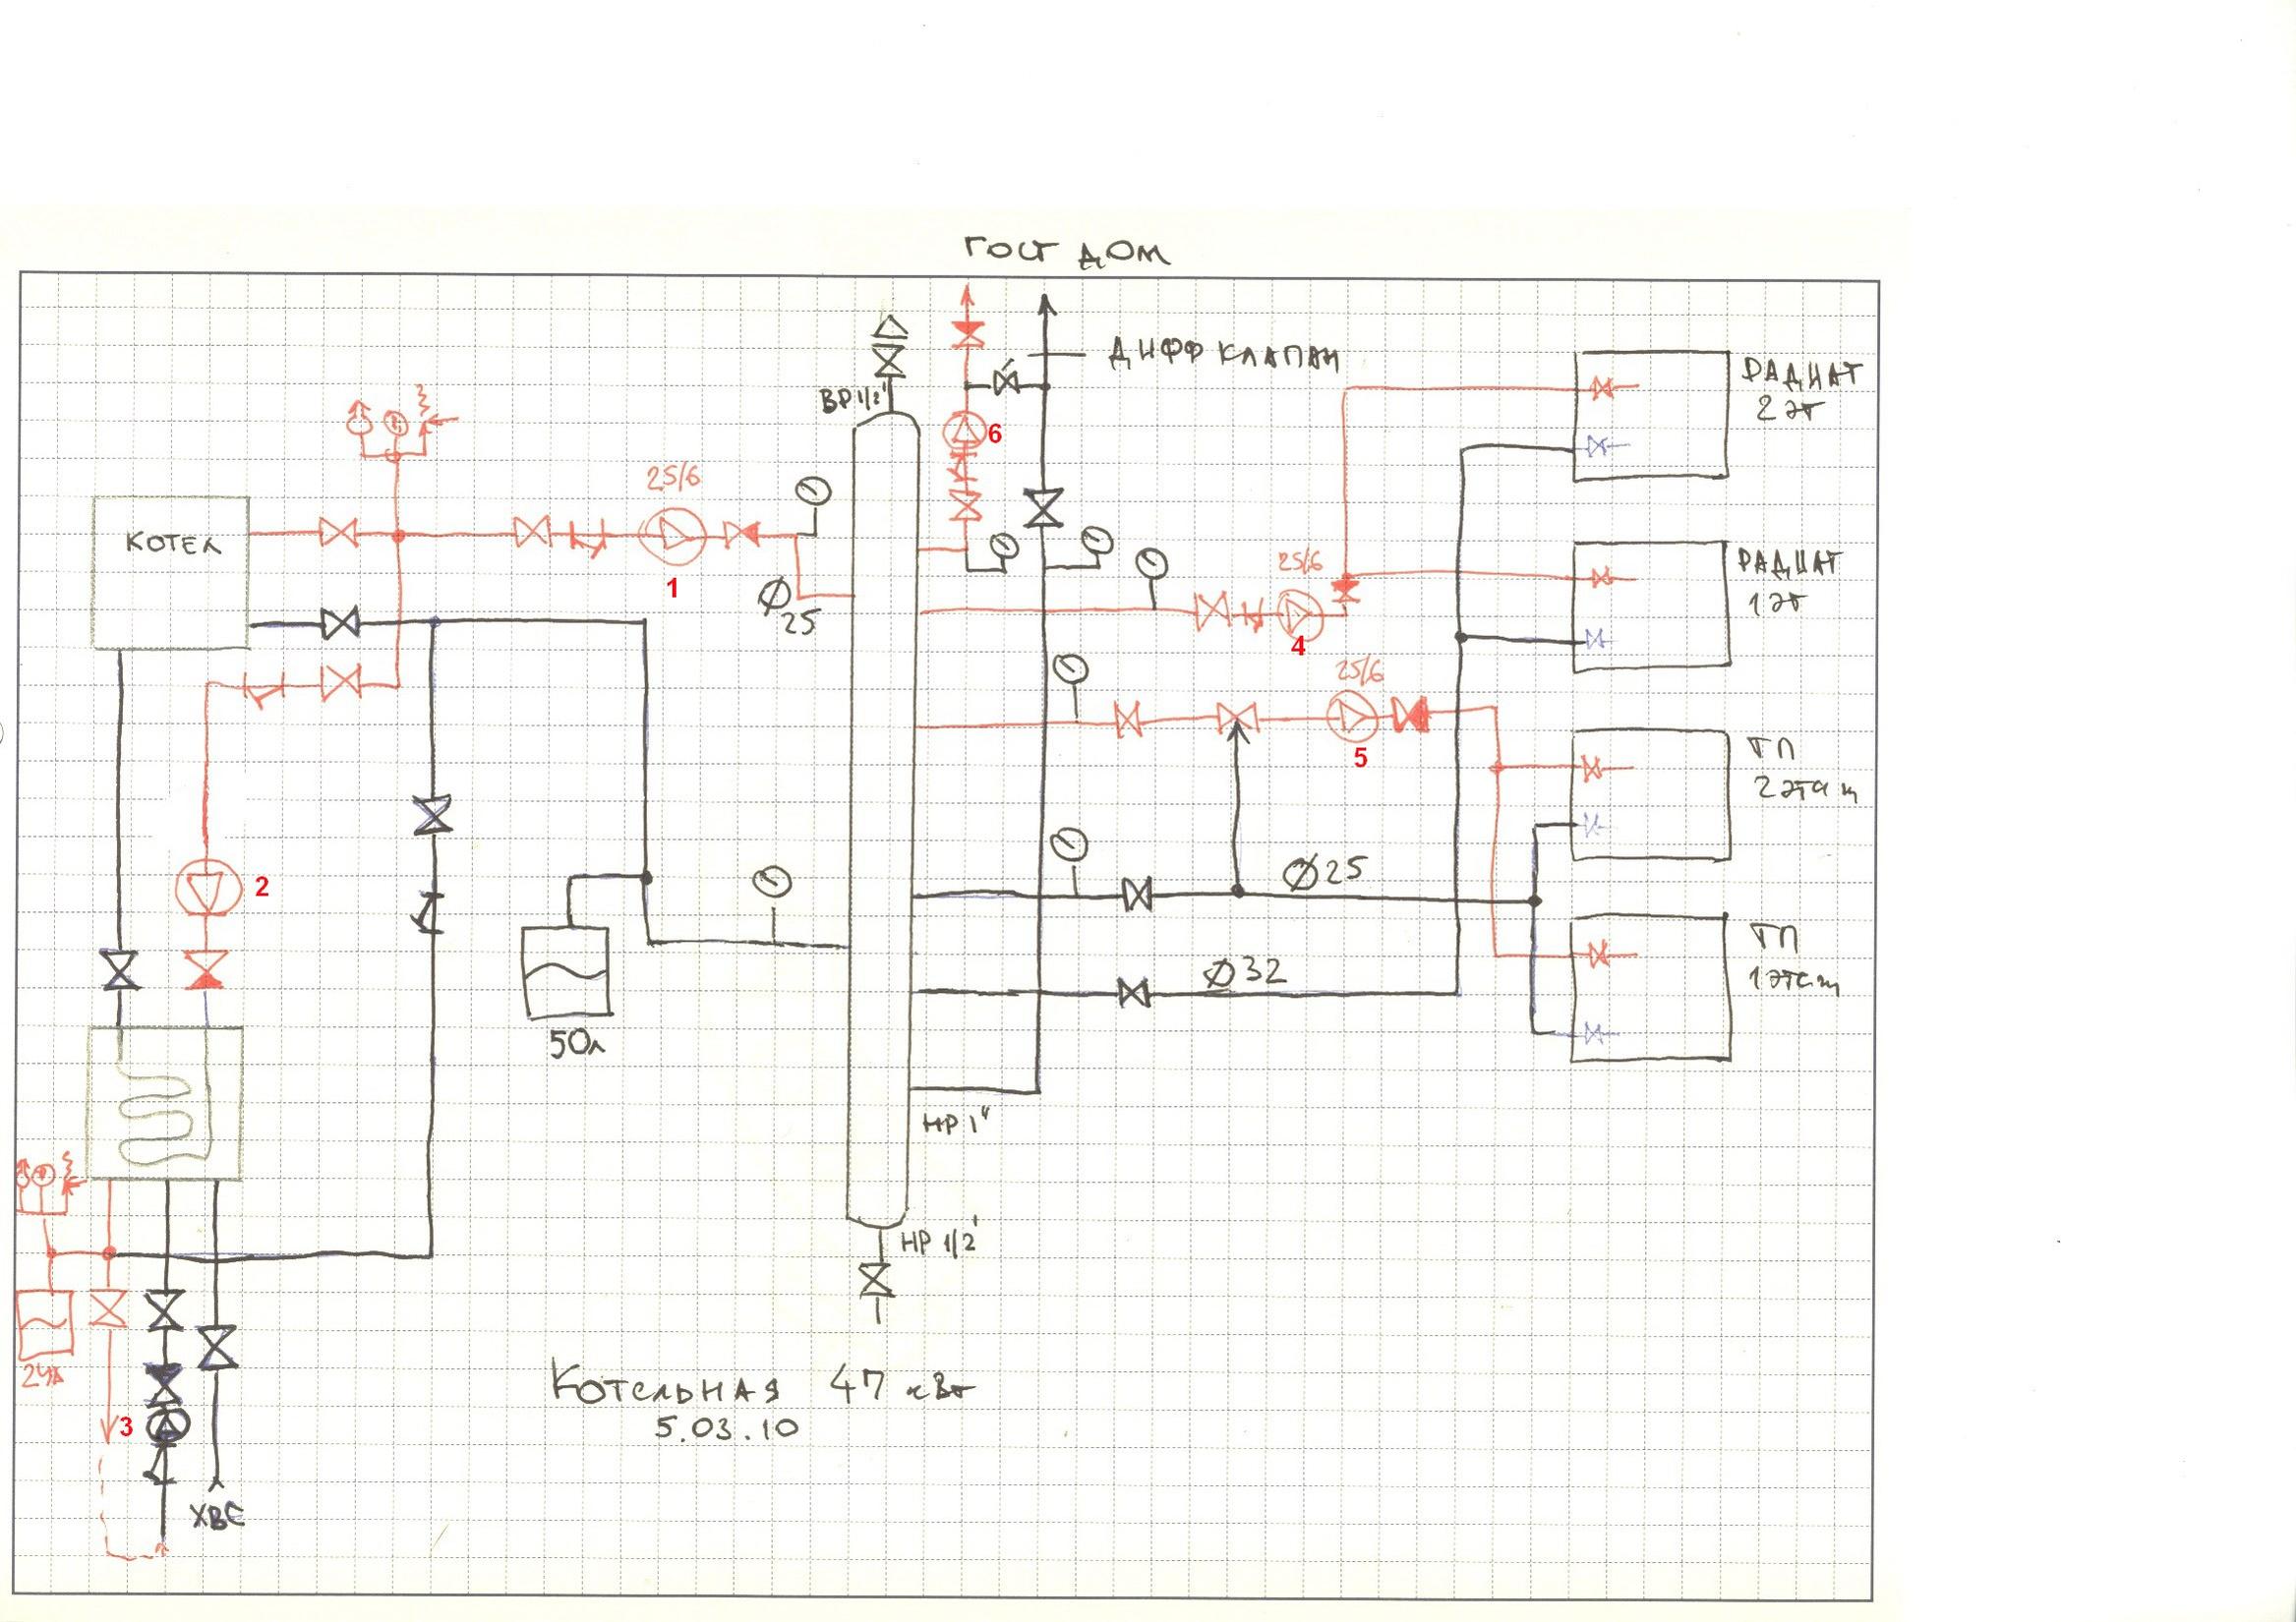 ГОСТ ДОМ
ДИФФ КЛАПАН
ВР 1/2'
РАДИАТ
2 эт
КОТЕЛ
25/6
1
6
Ø
25
РАДИАТ
1 эт
25/6
4
25/6
5
ТП
2 этаж
2
Ø25
ТП
1 этаж
Ø32
50л
НР 1"
НР 1/2'
24л
3
ХВС
Котельная 47 кВт
5.03.10